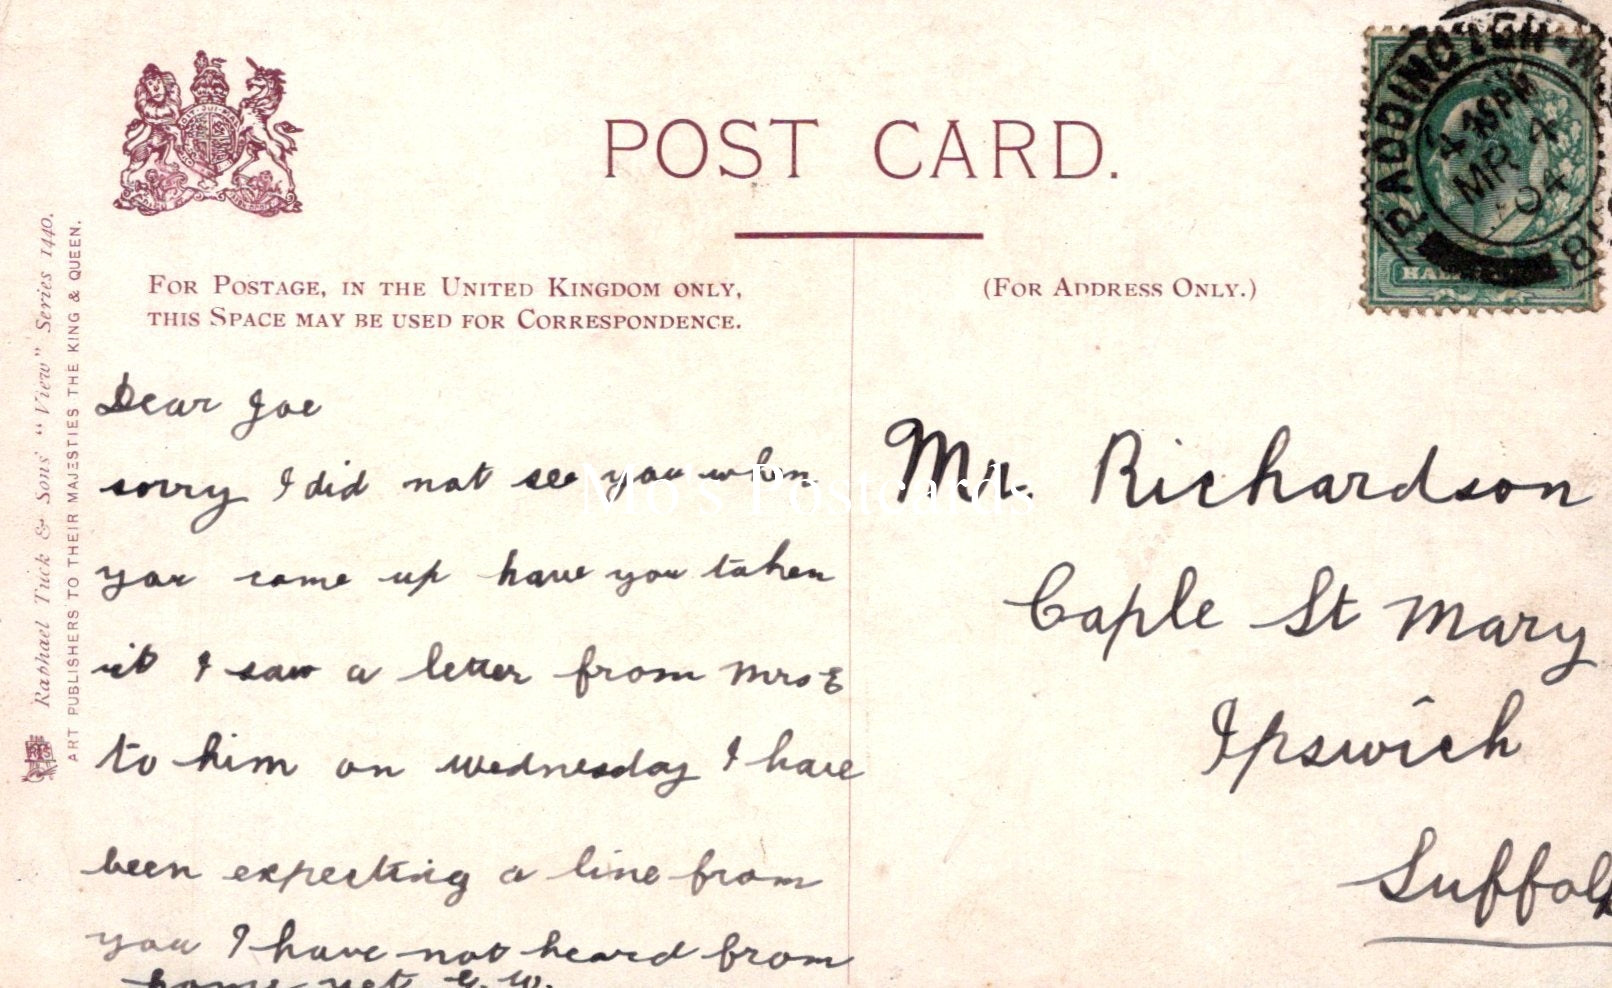 POST CARD.
FOR POSTAGE, IN THE UNITED KINGDOM ONLY,
THIS SPACE MAY BE USED FOR CORRESPONDENCE.
(FOR ADDRESS ONLY.)
Raphael Tuck & Sons' "View" Series 1440.
ART PUBLISHERS TO THEIR MAJESTIES THE KING & QUEEN.
Dear Joe
sorry I did not see you when
you came up have you taken
it I saw a letter from Mrs E
to him on wednesday I have
been expecting a line from
you I have not heard from
home yet G. W.
Mr. Richardson
Caple St Mary
Ipswich
Suffolk
PADDINGTON
4 45PM
MR 4
04
Mo's Postcards